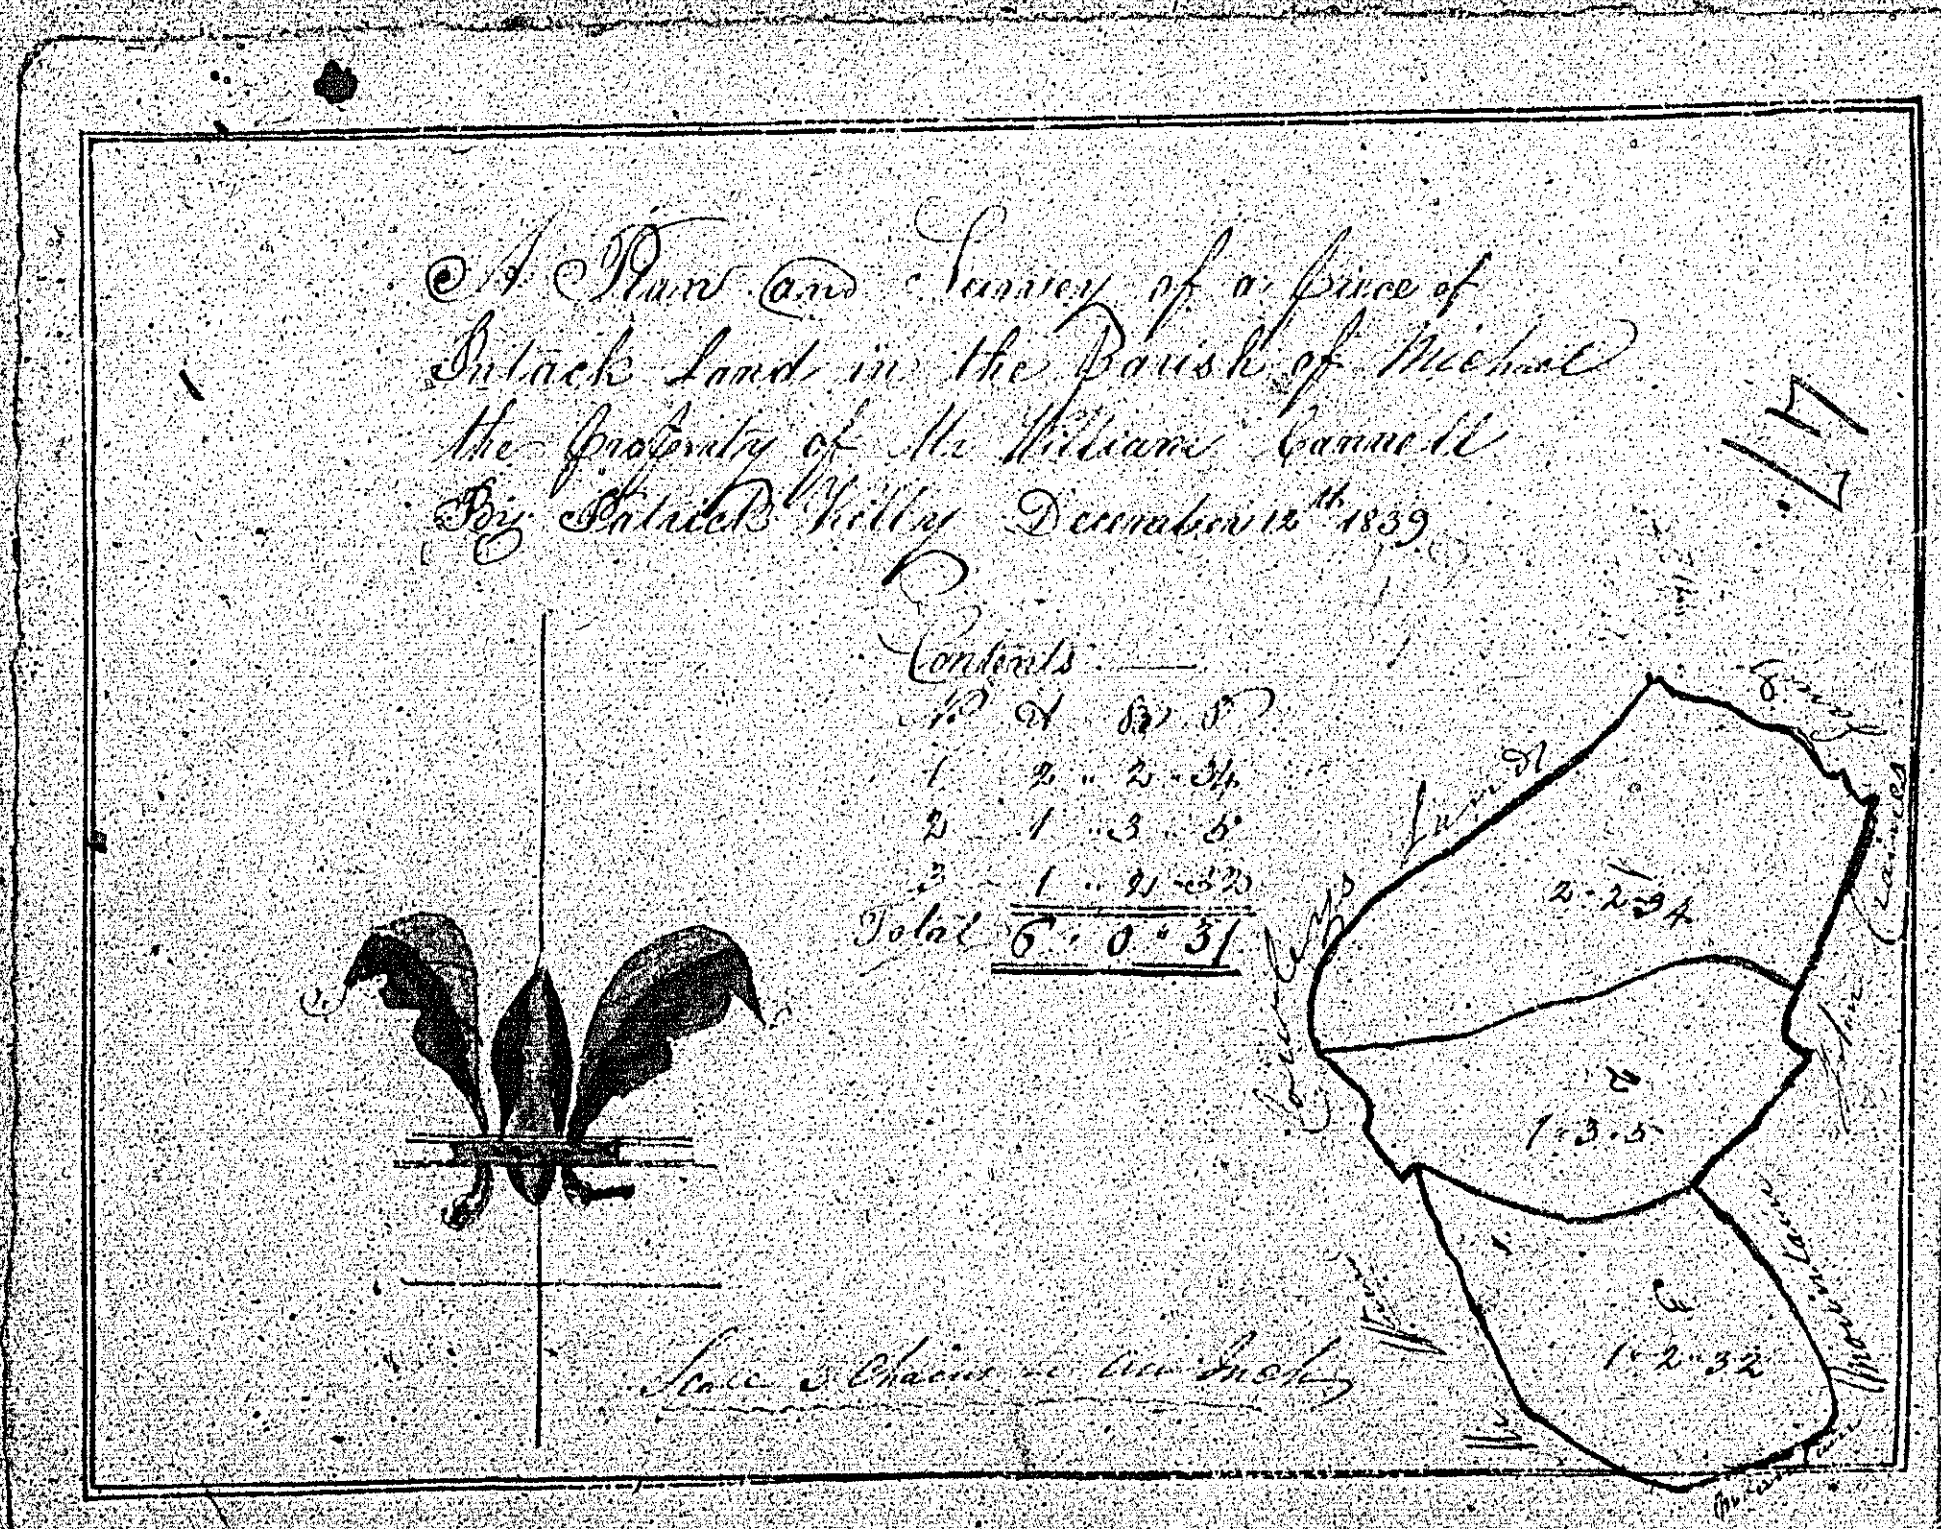 A Plan and Survey of a piece of
Intack Land in the Parish of Michael
the property of Mr William Cannell
By Patrick Kelly December 12th 1839
117
Contents
No A R P
1 2 " 2 " 34
2 1 " 3 " 5
3 1 " 2 " 32
Total 6 " 0 " 31
Land
Caines
2 - 2 - 34
2
1 - 3 - 5
Mountain
3
1 - 2 - 32
Scale 3 Chains Inch